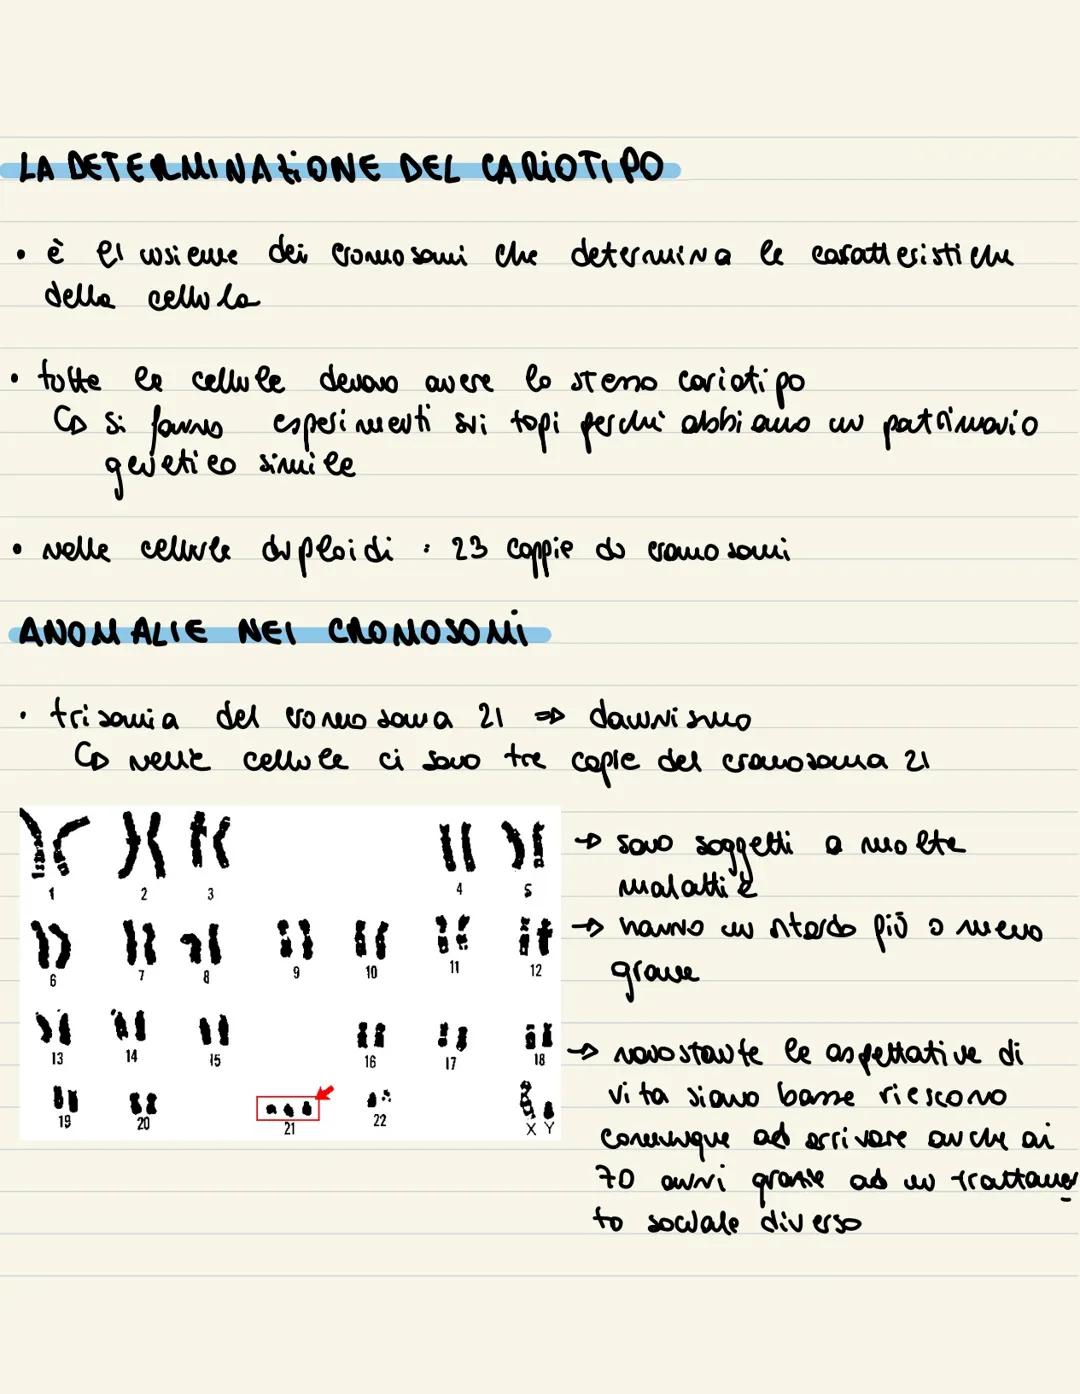 LA DETERMINAZIONE DEL CARIOTIPO
• è l'insieme dei cromosomi che determina le caratteristiche
della cellula
• tutte le cellule devono avere lo stesso cariotipo
↳ si fanno esperimenti sui topi perchè abbiamo un patrimonio
genetico simile
• nelle cellule diploidi : 23 coppie di cromosomi
ANOMALIE NEI CROMOSOMI
• trisomia del cromosoma 21 ⇒ downismo
↳ nelle cellule ci sono tre copie del cromosoma 21
1 2 3 4 5
6 7 8 9 10 11 12
13 14 15 16 17 18
19 20 21 22 X Y
→ sono soggetti a molte
malattie
→ hanno un ritardo più o meno
grave
→ nonostante le aspettative di
vita siano basse riescono
comunque ad arrivare anche ai
70 anni grazie ad un trattamen
to sociale diverso